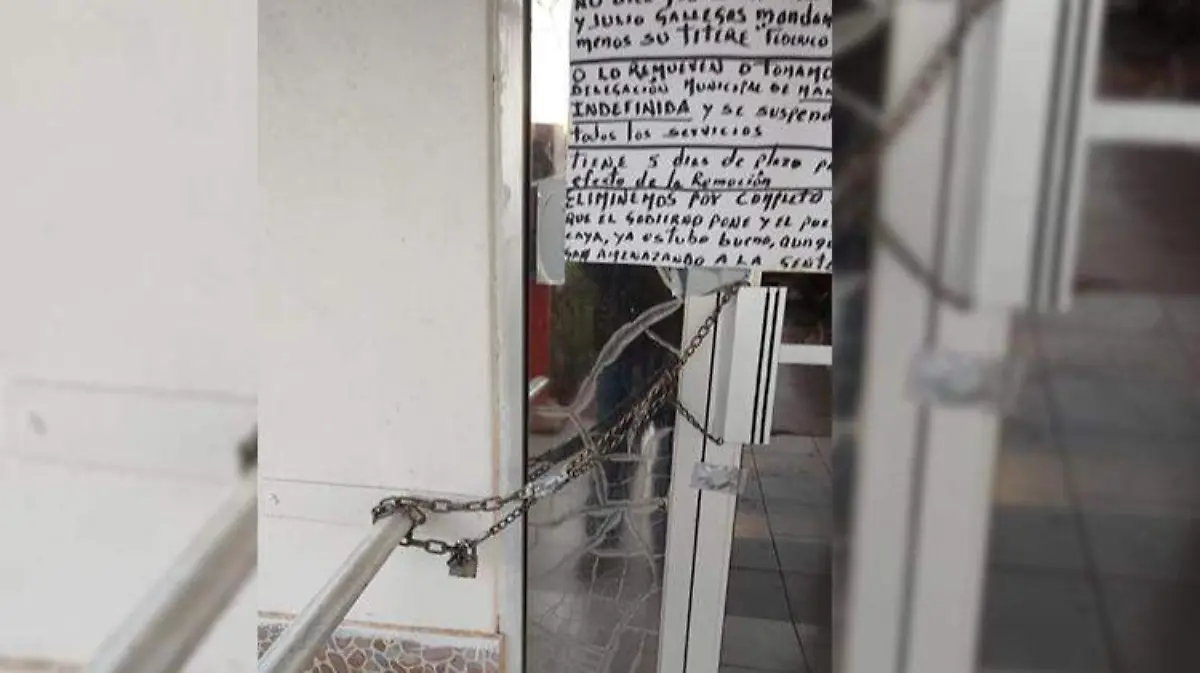 Y JULIO GALLEGAS MANDAM
MENOS SU TITERE "FEDERICO
O LO REMUEVEN O TOMAMO
DELEGACIÓN MUNICIPAL DE MAN
INDEFINIDA Y SE SUSPEND
todos los SERVICIOS
TIENE 5 dias de plazo PA
efecto de la Remoción
ELIMINEMOS POR COMPLETO
QUE EL GOBIERNO PONE Y EL PUE
CAYA, YA ESTUBO bueno, AUNQU
SAN AMENAZANDO A LA GENTE